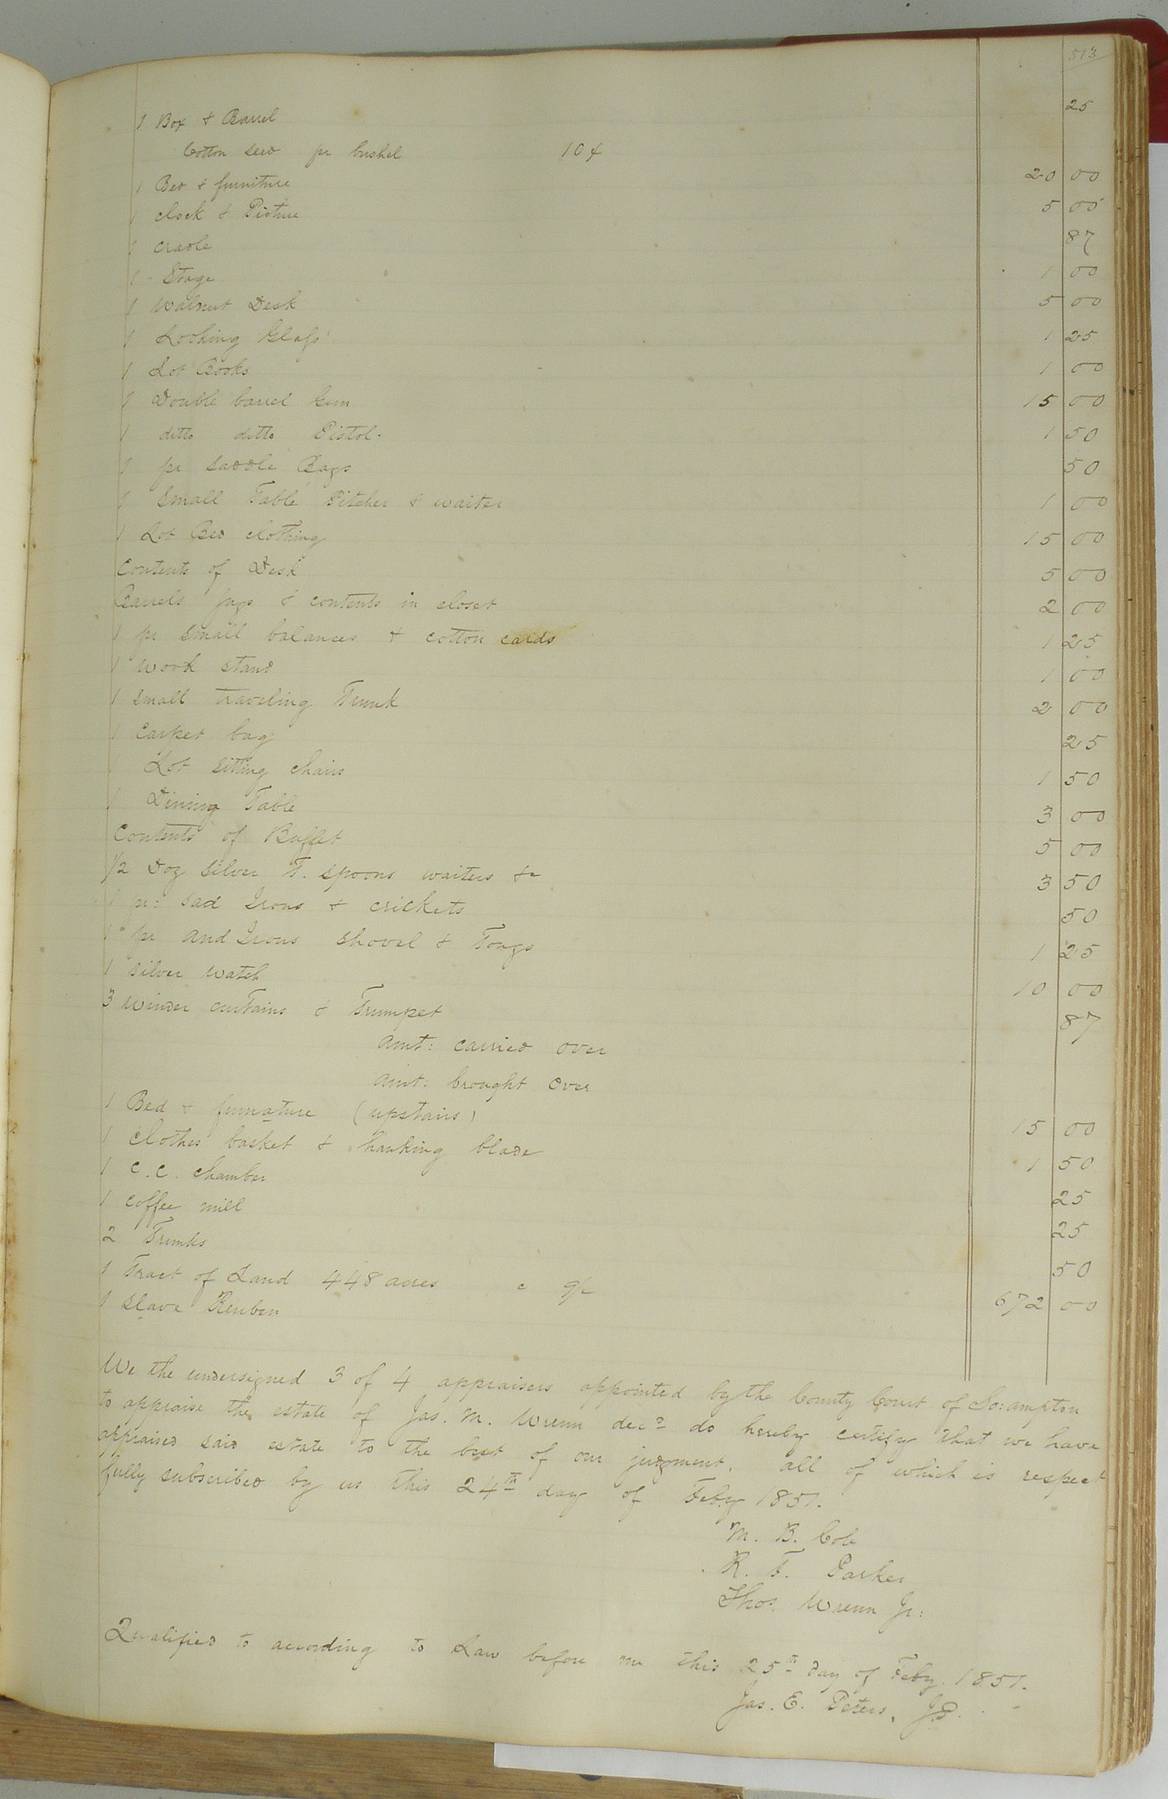 513
1 Box & Barrel 25
Cotton seed pr bushel 10¢
1 Bed & furniture 20 00
1 clock & Picture 5 00
1 cradle 87
1 Stage 1 00
1 Walnut Desk 5 00
1 Looking Glass 1 25
1 Lot Books 1 00
1 Double barrel Gun 15 00
1 ditto ditto Pistol. 1 50
1 pr saddle Bags 50
1 Small Table Pitcher & waiter 1 00
1 Lot Bed clothing 15 00
Contents of Desk 5 00
Barrels Jugs & contents in closet 2 00
1 pr small balances & cotton cards 1 25
1 work stand 1 00
1 small traveling Trunk 2 00
1 Carpet bag 25
1 Lot sitting chairs 1 50
1 Dining Table 3 00
Contents of Buffet 5 00
1/2 Doz silver T. spoons waiters &c 3 50
1 pr: sad Irons & crickets 50
1 pr and Irons shovel & Tongs 1 25
1 silver watch 10 00
3 winder curtains & Trumpet 87
Amt: carried over
Amt: brought over
1 Bed & furnature (upstairs) 15 00
1 Clothes basket & hanking blade 1 50
1 C.C. Chamber 25
1 Coffee mill 25
2 Trunks 50
1 Tract of Land 448 acres 672 00
1 Slave Reuben
We the undersigned 3 of 4 appraisers appointed by the County Court of So:ampton
to appraise the estate of Jas. M. Wrenn decd do hereby certify that we have
appraised said estate to the best of our judgment. all of which is respect
fully subscribed by us this 24th day of Feby 1851.
M. B. Cob
R. T. Parker
Thos. Wrenn Jr:
Qualified to according to Law before me this 25th day of Feby. 1851.
Jas. E. Peters, JP.